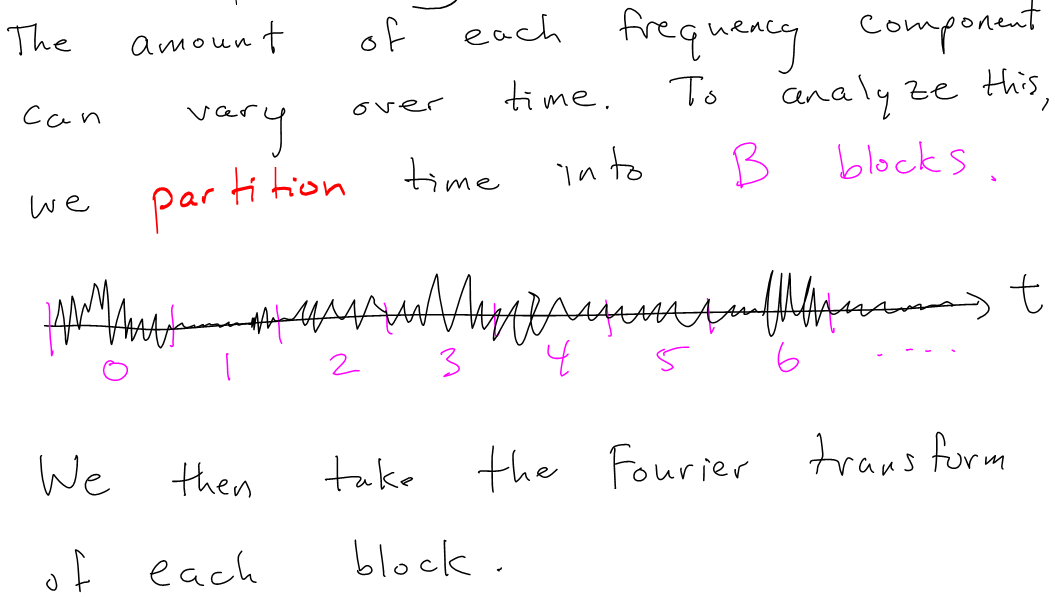 The amount of each frequency component
can vary over time. To analyze this,
we partition time into B blocks.
t
0 1 2 3 4 5 6 .....
We then take the Fourier transform
of each block.